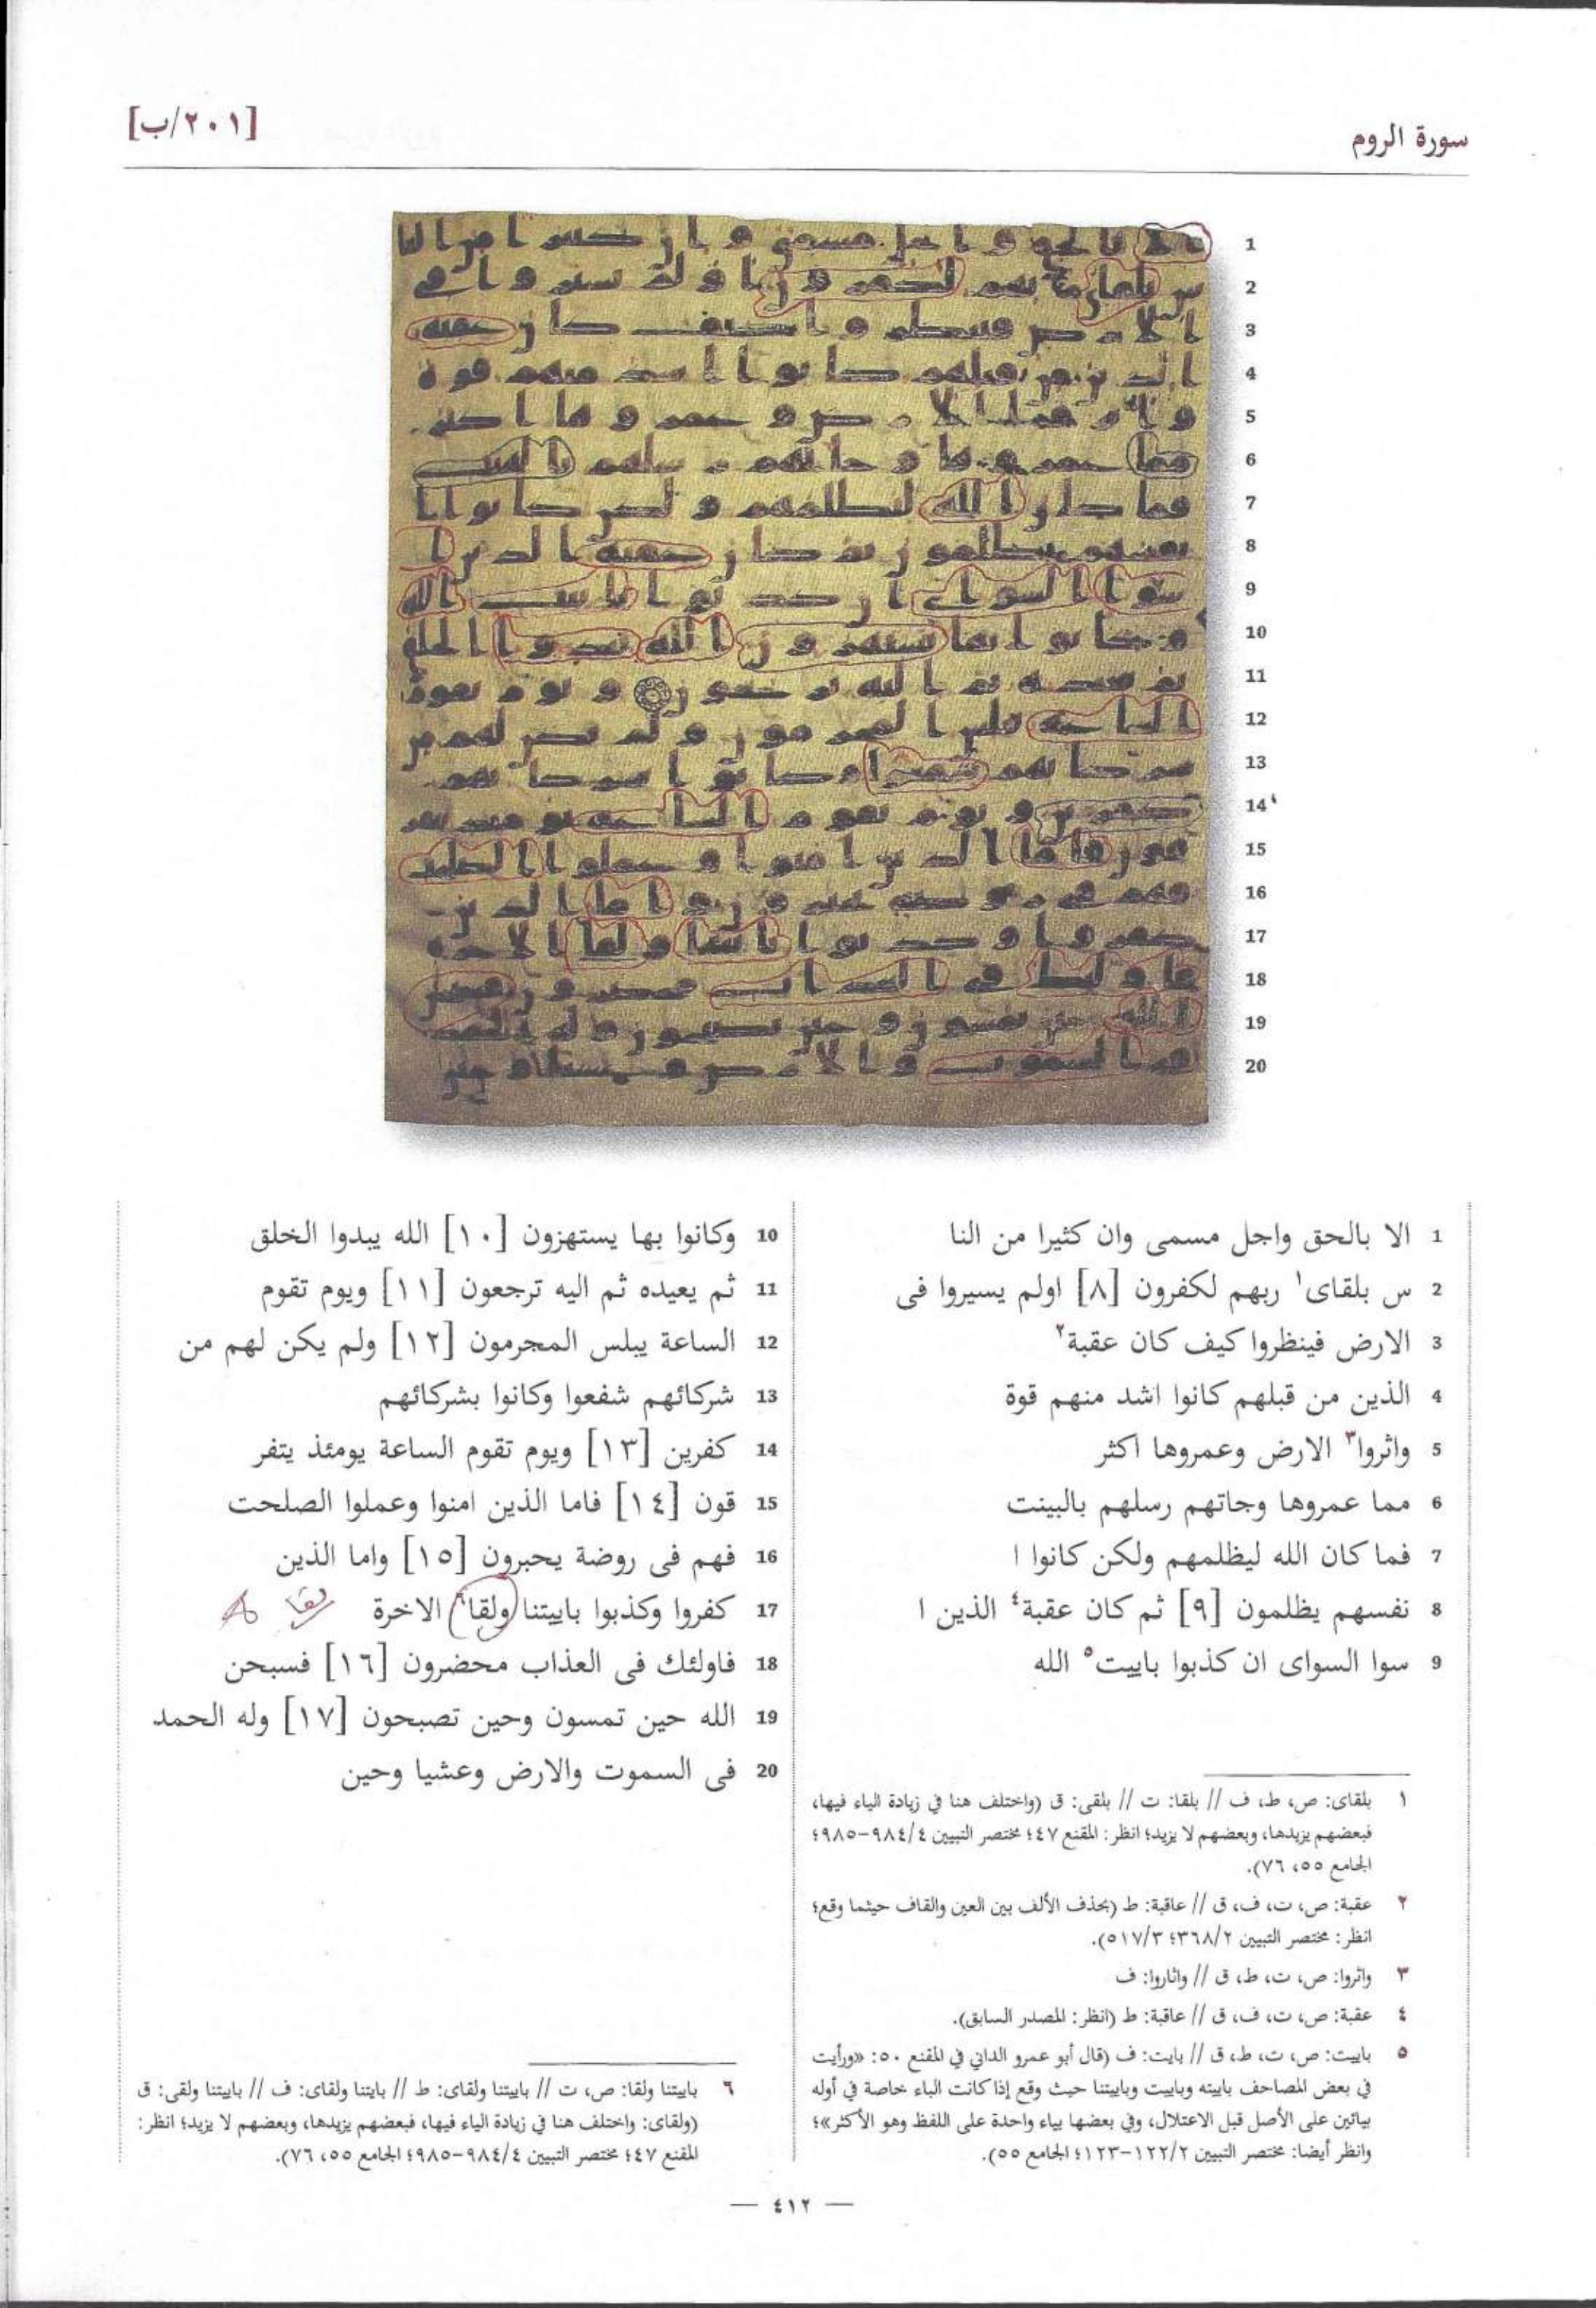 سورة الروم
[٢٠١/ب]
1 الا بالحق واجل مسمى وان كثيرا من النا
2 س بلقاى١ ربهم لكفرون [٨] اولم يسيروا فى
3 الارض فينظروا كيف كان عقبة٢
4 الذين من قبلهم كانوا اشد منهم قوة
5 واثروا٣ الارض وعمروها اكثر
6 مما عمروها وجاتهم رسلهم بالبينت
7 فما كان الله ليظلمهم ولكن كانوا ا
8 نفسهم يظلمون [٩] ثم كان عقبة٤ الذين ا
9 سوا السواى ان كذبوا باييت٥ الله
10 وكانوا بها يستهزون [١٠] الله يبدوا الخلق
11 ثم يعيده ثم اليه ترجعون [١١] ويوم تقوم
12 الساعة يبلس المجرمون [١٢] ولم يكن لهم من
13 شركائهم شفعوا وكانوا بشركائهم
14 كفرين [١٣] ويوم تقوم الساعة يومئذ يتفر
15 قون [١٤] فاما الذين امنوا وعملوا الصلحت
16 فهم فى روضة يحبرون [١٥] واما الذين
17 كفروا وكذبوا باييتنا ولقا٦ الاخرة
18 فاولئك فى العذاب محضرون [١٦] فسبحن
19 الله حين تمسون وحين تصبحون [١٧] وله الحمد
20 فى السموت والارض وعشيا وحين
١ بلقاى: ص، ط، ف // بلقا: ت // بلقى: ق (واختلف هنا في زيادة الياء فيها،
فبعضهم يزيدها، وبعضهم لا يزيد؛ انظر: المقنع ٤٧؛ مختصر التبيين ٩٨٤/٤-٩٨٥؛
الجامع ٥٥، ٧٦).
٢ عقبة: ص، ت، ف، ق // عاقبة: ط (بحذف الألف بين العين والقاف حيثما وقع؛
انظر: مختصر التبيين ٣٦٨/٢؛ ٥١٧/٣).
٣ واثروا: ص، ت، ط، ق // واثاروا: ف
٤ عقبة: ص، ت، ف، ق // عاقبة: ط (انظر: المصدر السابق).
٥ باييت: ص، ت، ط، ق // بايت: ف (قال أبو عمرو الداني في المقنع ٥٠: «ورأيت
في بعض المصاحف باييته وباييت وباييتنا حيث وقع إذا كانت الباء خاصة في أوله
بيائين على الأصل قبل الاعتلال، وفي بعضها بياء واحدة على اللفظ وهو الأكثر»؛
وانظر أيضا: مختصر التبيين ١٢٢/٢-١٢٣؛ الجامع ٥٥).
٦ باييتنا ولقا: ص، ت // باييتنا ولقاى: ط // بايتنا ولقاى: ف // باييتنا ولقى: ق
(ولقاى: واختلف هنا في زيادة الياء فيها، فبعضهم يزيدها، وبعضهم لا يزيد؛ انظر:
المقنع ٤٧؛ مختصر التبيين ٩٨٤/٤-٩٨٥؛ الجامع ٥٥، ٧٦).
— ٤١٢ —